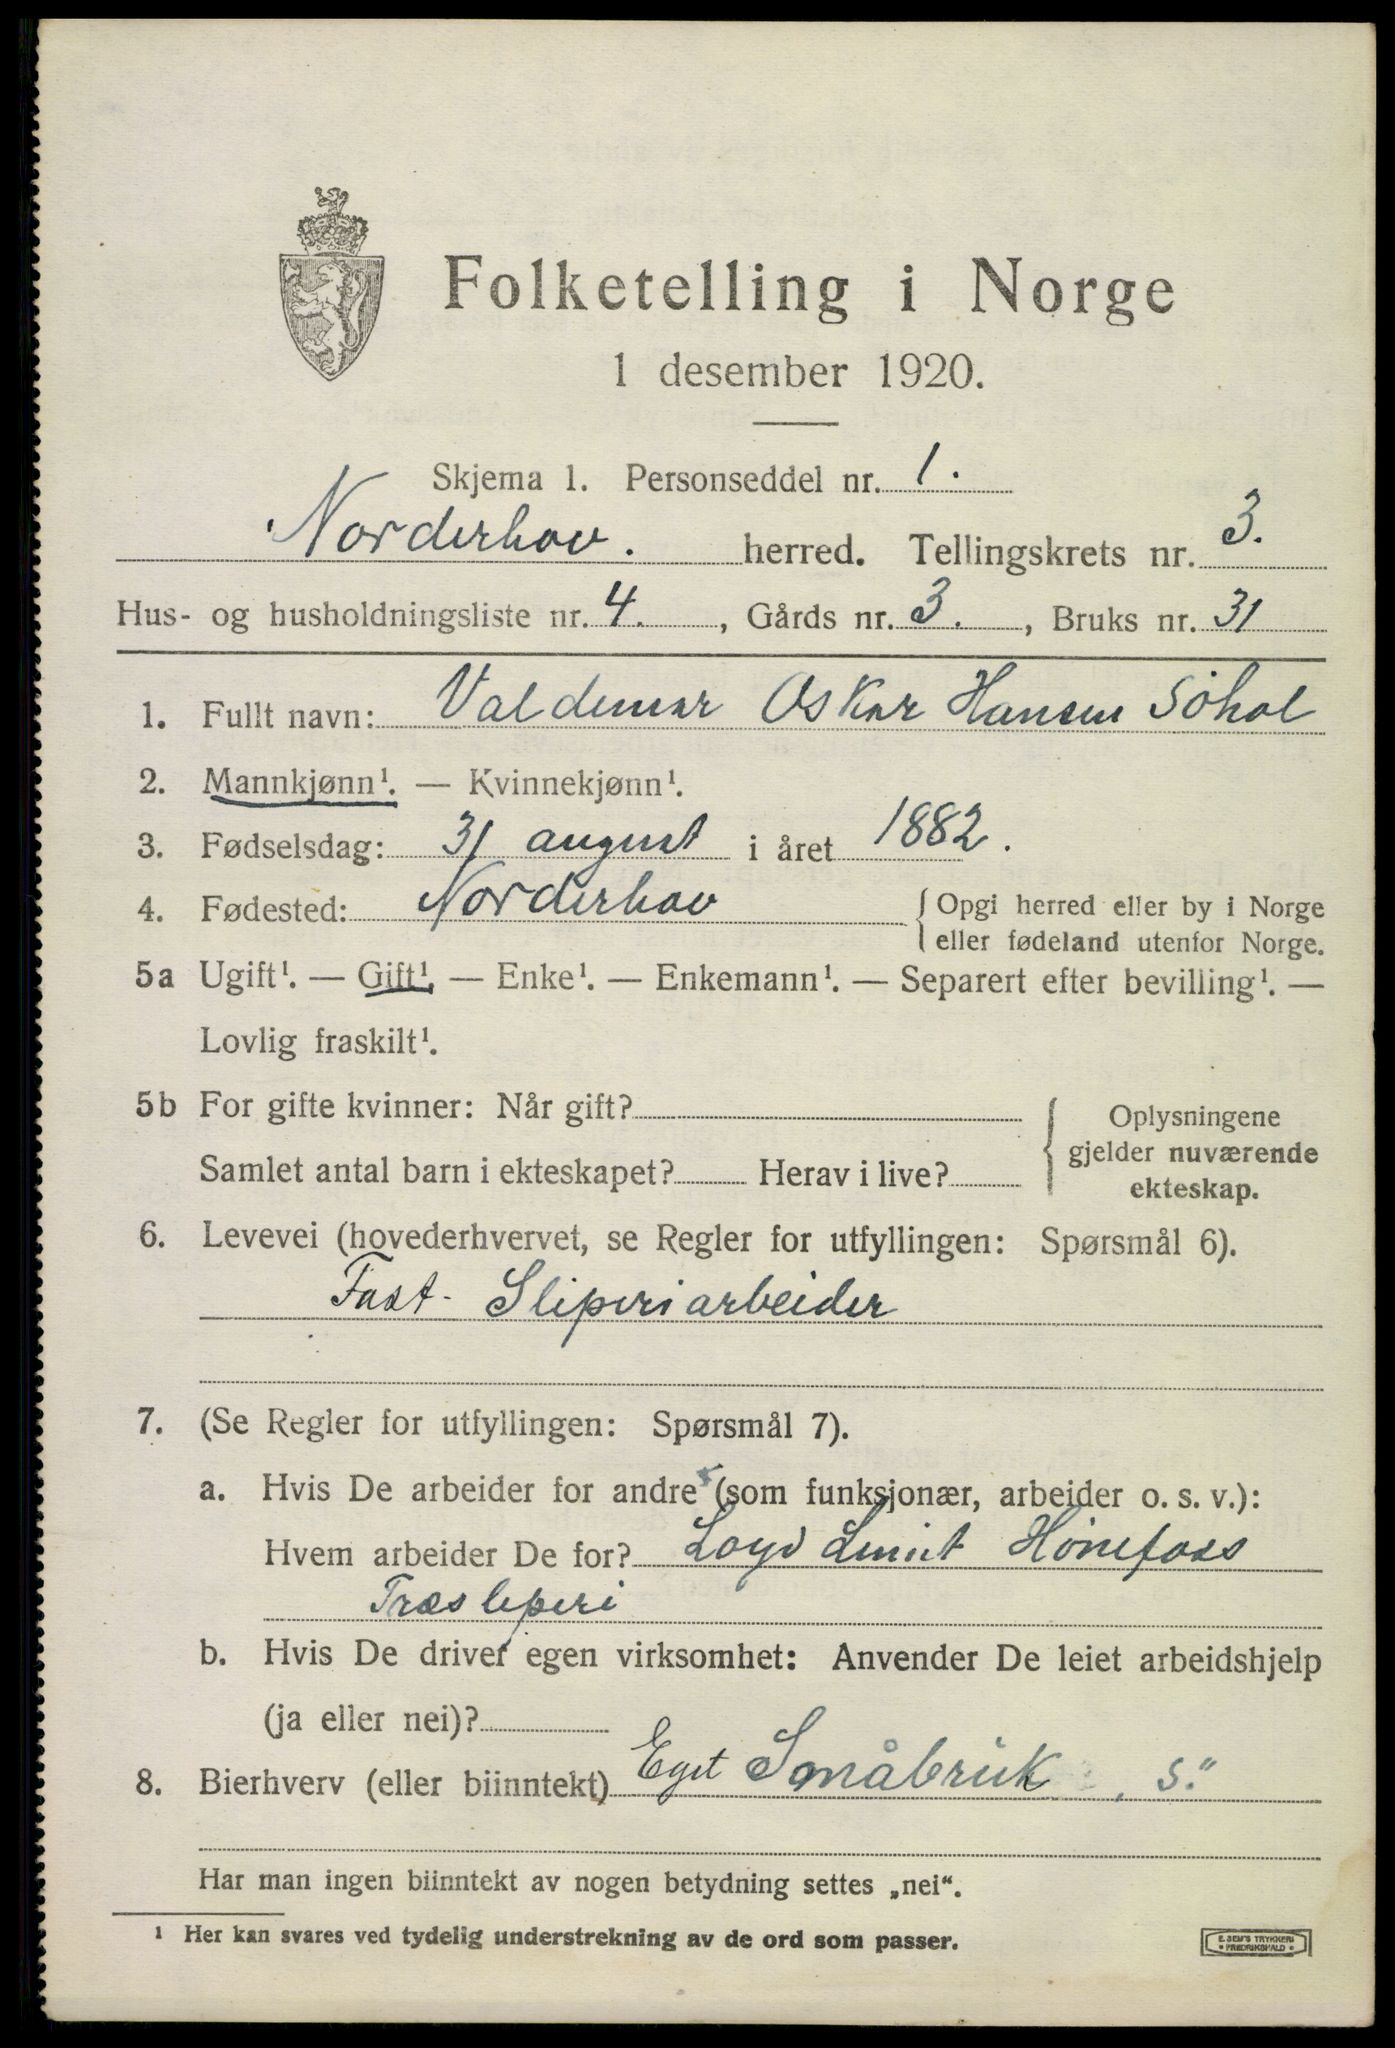 Folketelling i Norge
1 desember 1920.
Skjema 1. Personseddel nr. 1.
Norderhov. herred. Tellingskrets nr. 3.
Hus- og husholdningsliste nr. 4. , Gårds nr. 3. , Bruks nr. 31
1. Fullt navn: Valdemar Oskar Hansen Søhol
2. Mannkjønn¹. — Kvinnekjønn¹.
3. Fødselsdag: 31 august i året 1882.
4. Fødested: Norderhov { Opgi herred eller by i Norge
eller fødeland utenfor Norge.
5a Ugift¹. — Gift¹. — Enke¹. — Enkemann¹. — Separert efter bevilling¹. —
Lovlig fraskilt¹.
5b For gifte kvinner: Når gift?
Samlet antal barn i ekteskapet? Herav i live?
{ Oplysningene
gjelder nuværende
ekteskap.
6. Levevei (hovederhvervet, se Regler for utfyllingen: Spørsmål 6).
Fast- Sliperiarbeider
7. (Se Regler for utfyllingen: Spørsmål 7).
a. Hvis De arbeider for andre (som funksjonær, arbeider o. s. v.):
Hvem arbeider De for? Loyd Hønefoss
Træsliperi
b. Hvis De driver egen virksomhet: Anvender De leiet arbeidshjelp
(ja eller nei)?
8. Bierhverv (eller biinntekt) Eget Småbruk , s."
Har man ingen biinntekt av nogen betydning settes „nei“.
¹ Her kan svares ved tydelig understrekning av de ord som passer.
E. SEM'S TRYKKERI
• FREDRIKSHALD •